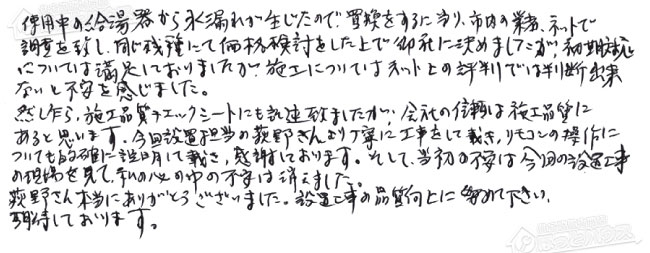 使用中の給湯器から水漏れが生じたので、置換をするに当り、市内の業者、ネットで
調査を致し、同じ機種にて価格検討をした上で御社に決めましたが、初期対応
については満足しておりましたが、施工についてはネット上の評判では判断出来
ないと不安を感じました。
然し乍ら、施工品質チェックシートにも記述致しましたが、会社の信頼は施工品質に
あると思います。今回設置担当の荻野さんより丁寧に工事をして戴き、リモコンの操作に
ついても的確に説明して戴き、感謝しております。そして、当初の不安は今回の設置工事
の現場を見て、私の心の中の不安は消えました。
荻野さん本当にありがとうございました。設置工事の品質向上に努めて下さい。
期待しております。